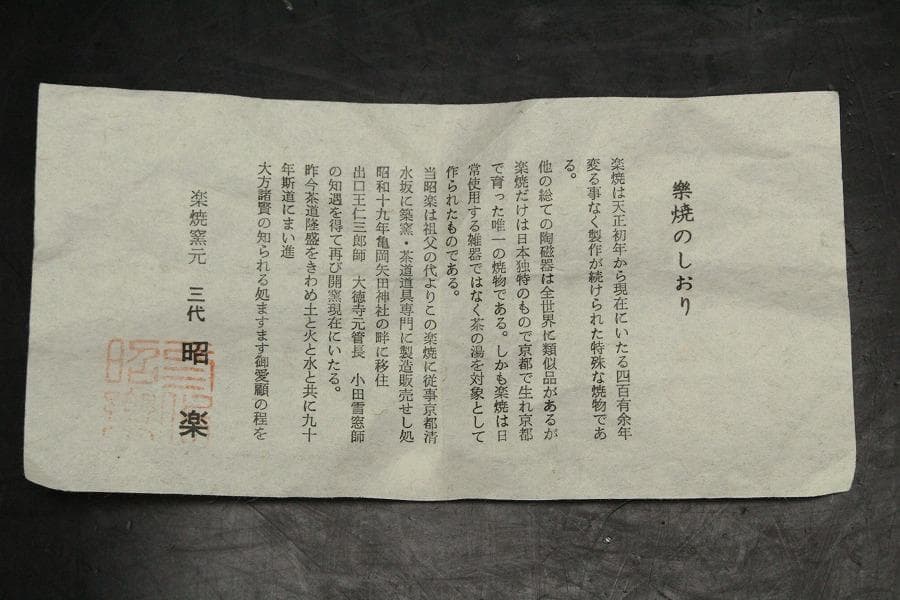 樂焼のしおり
楽焼は天正初年から現在にいたる四百有余年
変る事なく製作が続けられた特殊な焼物であ
る。
他の総ての陶磁器は全世界に類似品があるが
楽焼だけは日本独特のもので京都で生れ京都
で育った唯一の焼物である。しかも楽焼は日
常使用する雑器ではなく茶の湯を対象として
作られたものである。
当昭楽は祖父の代よりこの楽焼に従事京都清
水坂に築窯・茶道道具専門に製造販売せし処
昭和十九年亀岡矢田神社の畔に移住
出口王仁三郎師 大徳寺元管長 小田雪窓師
の知遇を得て再び開窯現在にいたる。
昨今茶道隆盛をきわめ土と火と水と共に九十
年斯道にまい進
大方諸賢の知られる処ますます御愛顧の程を
楽焼窯元 三代 昭楽